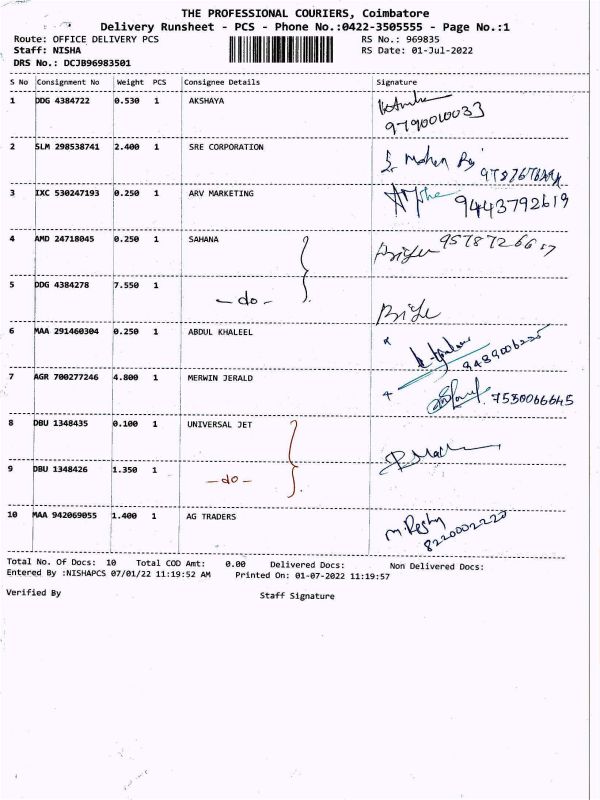 THE PROFESSIONAL COURIERS, Coimbatore
Delivery Runsheet - PCS - Phone No.:0422-3505555 - Page No.:1
Route: OFFICE DELIVERY PCS RS No.: 969835
Staff: NISHA RS Date: 01-Jul-2022
DRS No.: DCJB96983501
S No Consignment No Weight PCS Consignee Details Signature
1 DDG 4384722 0.530 1 AKSHAYA
9790010033
2 SLM 298538741 2.400 1 SRE CORPORATION
3 IXC 530247193 0.250 1 ARV MARKETING 9443792619
4 AMD 24718045 0.250 1 SAHANA
5 DDG 4384278 7.550 1
- do -
6 MAA 291460304 0.250 1 ABDUL KHALEEL
9489006225
7 AGR 700277246 4.800 1 MERWIN JERALD
7530066645
8 DBU 1348435 0.100 1 UNIVERSAL JET
9 DBU 1348426 1.350 1
- do -
10 MAA 942069055 1.400 1 AG TRADERS
8220002220
Total No. Of Docs: 10 Total COD Amt: 0.00 Delivered Docs: Non Delivered Docs:
Entered By :NISHAPCS 07/01/22 11:19:52 AM Printed On: 01-07-2022 11:19:57
Verified By Staff Signature